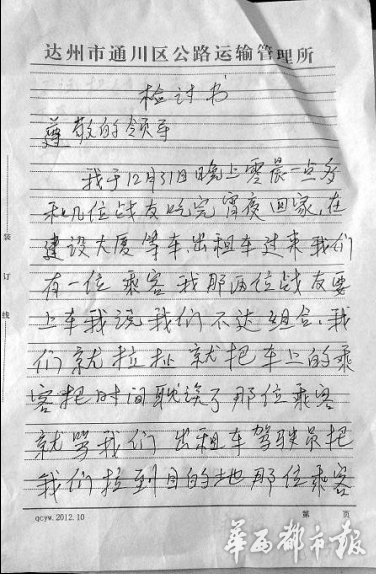 达州市通川区公路运输管理所
检讨书
尊敬的领导
我于12月31日晚上零晨一点多
和几位战友吃完宵夜回家,在
建设大厦等车,出租车过来我们
有一位乘客 我那两位战友要
上车我说我们不达组合,我
们就拉扯 就把车上的乘
客把时间耽误了那位乘客
就骂我们 出租车驾驶员把
我们拉到目的地那位乘客
装订线
qcyw.2012.10
第 页
华西都市报